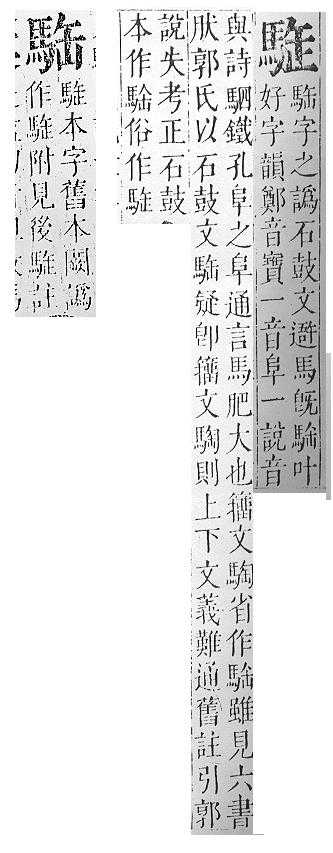 字之譌石鼓文避馬旣𩣡叶
好字韻鄭音寶一音阜一說音
與詩駟鐵孔阜之阜通言馬肥大也籒文騊省作𩣡雖見六書
肰郭氏以石鼓文𩣡疑卽籒文騊則上下文義難通舊註引郭
說失考正石鼓
本作𩣡俗作
𩣡
本字舊本闕譌
作附見後註